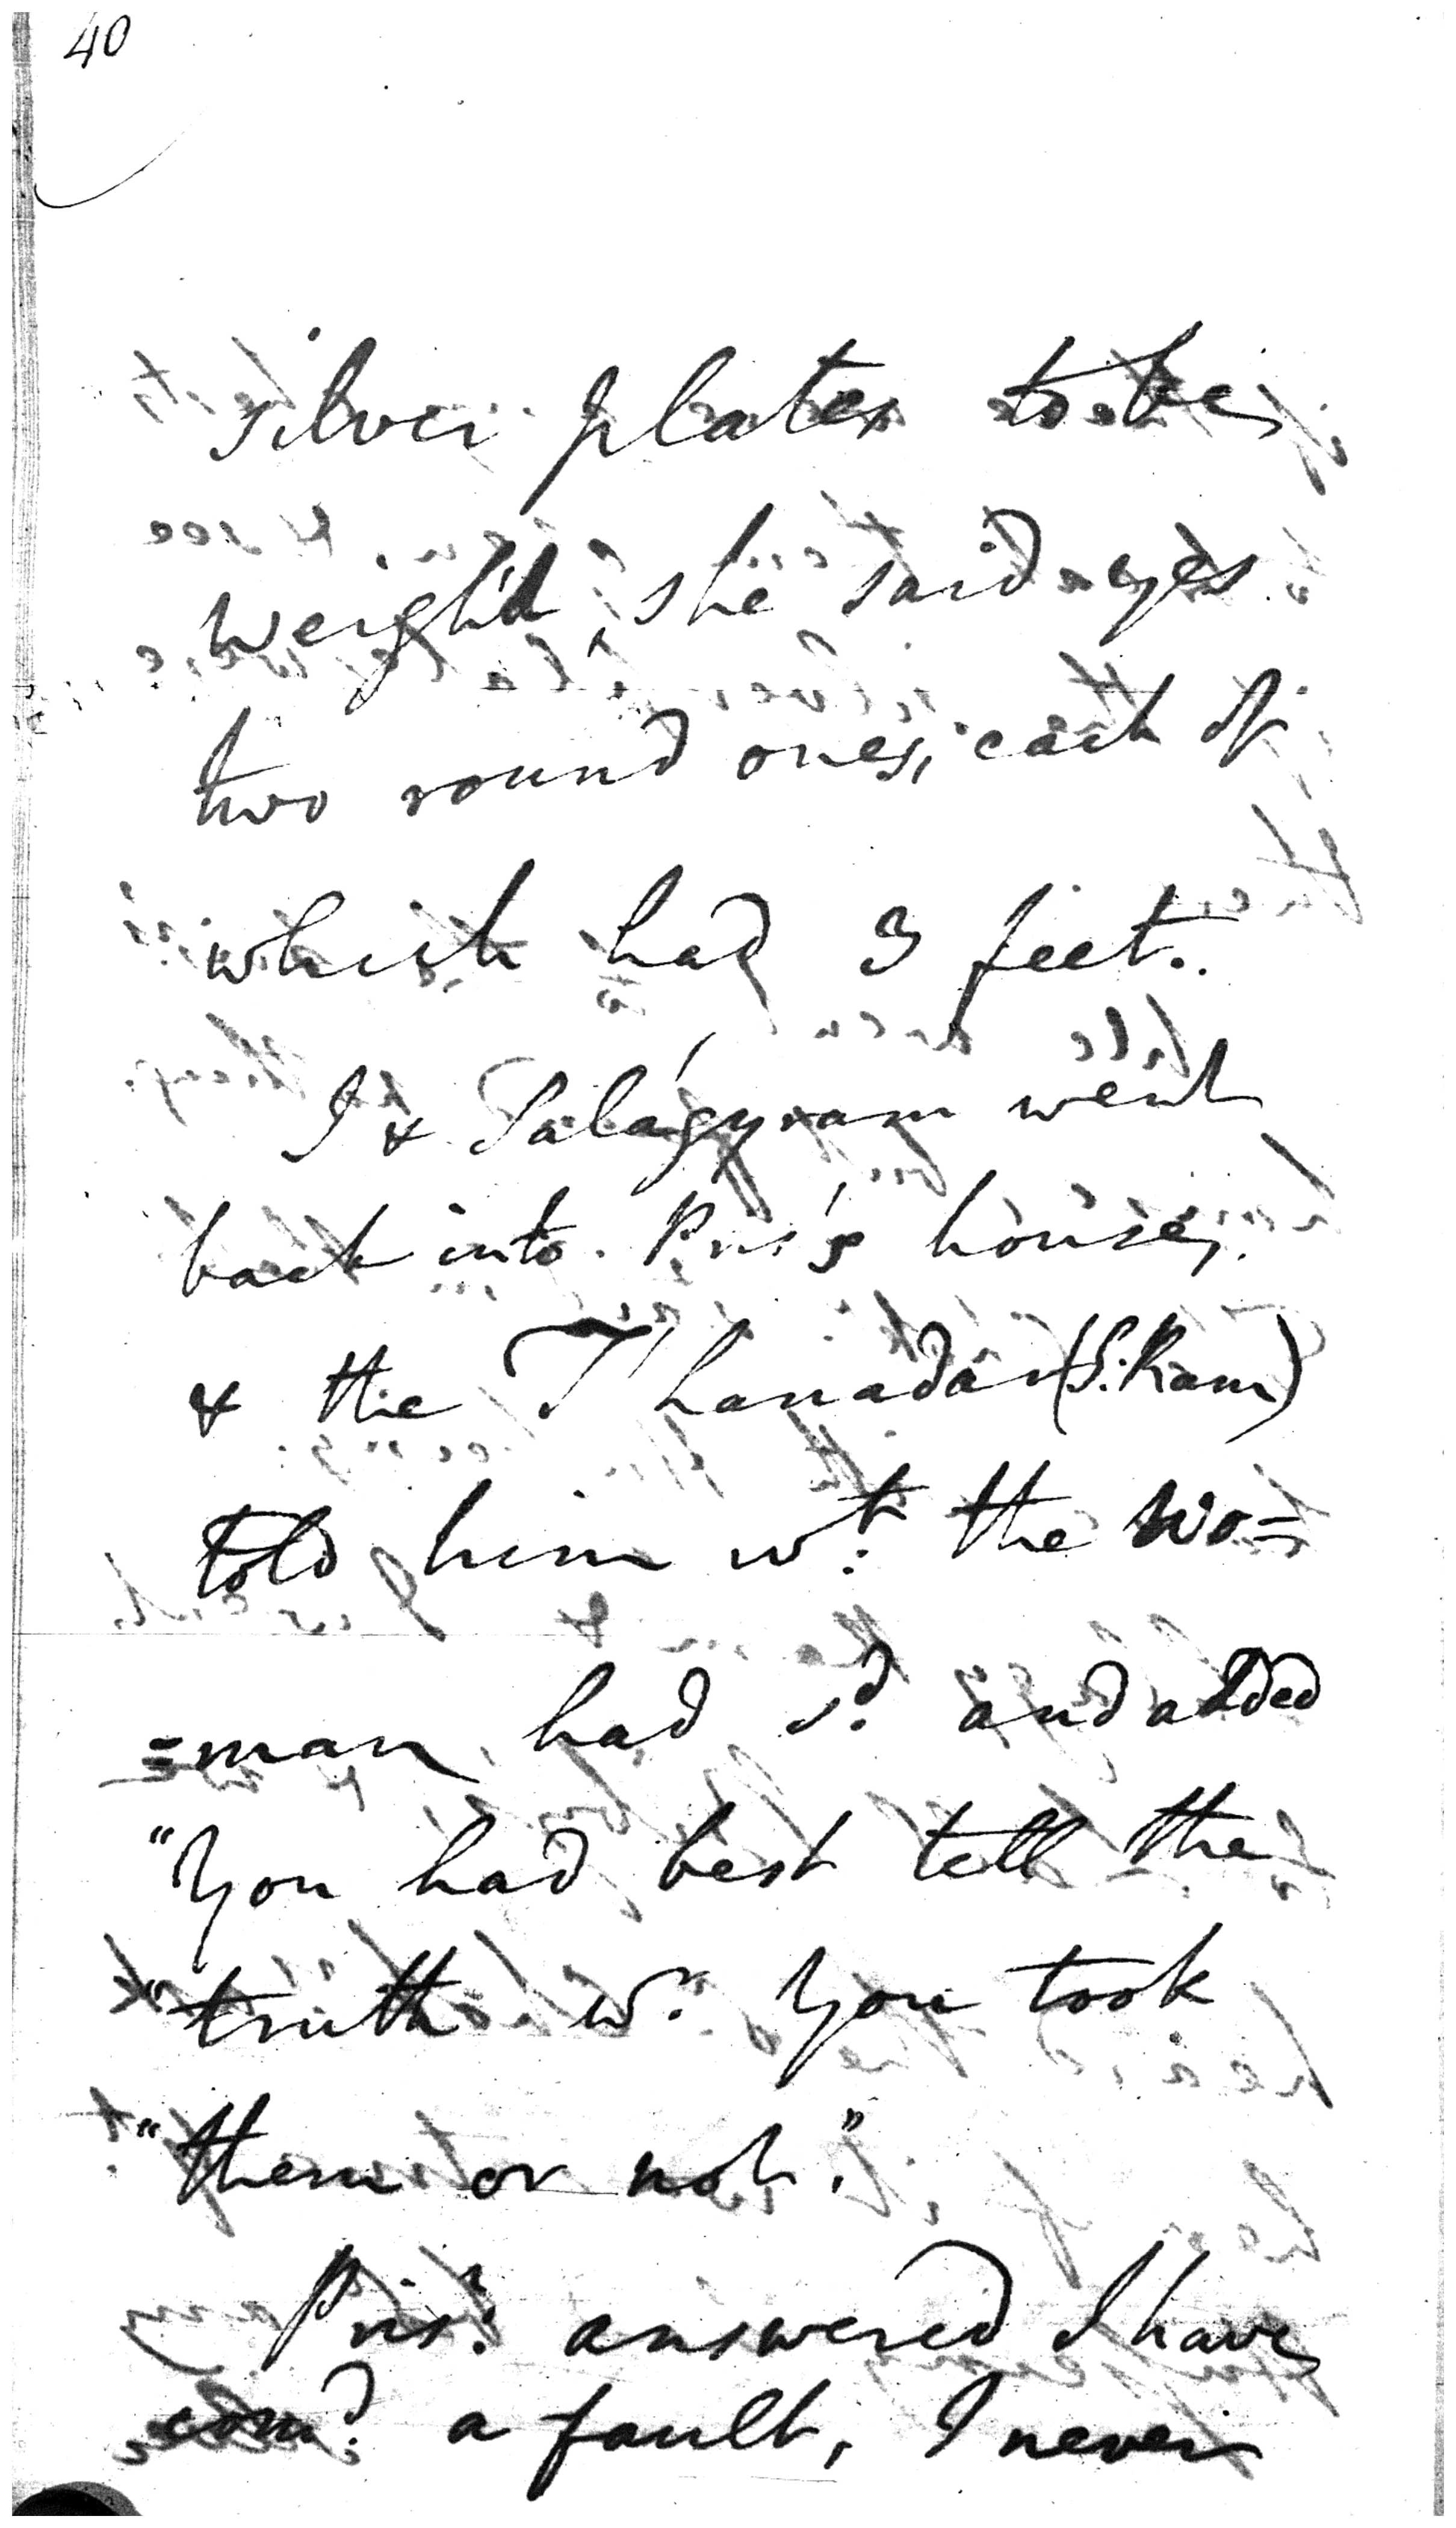 40
silver plates to be
weigh'd, she said yes
two round ones, each of
which had 3 feet.
I & Salagyram went
back into Pris'rs house,
& the Thanadar (S. Ram)
told him wt. the wo=
=man had sd. and added
"You had best tell the
"truth wr. you took
"them or not."
Prisr. answered I have
comd. a fault, I never